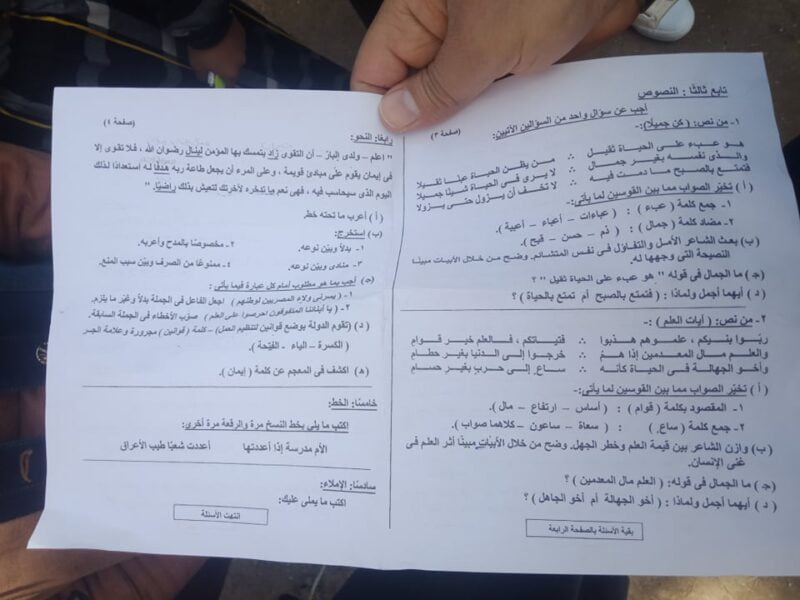 تابع ثالثًا : النصوص
أجب عن سؤال واحد من السؤالين الآتيين:
(صفحة ٣)
١- من نص: (كن جميلًا):-
هو عبء على الحياة ثقيل ∴ من يظن الحياة عبئا ثقيلا
والذى نفسه بغير جمال ∴ لا يرى فى الحياة شيئا جميلا
فتمتع بالصبح ما دمت فيه ∴ لا تخف أن يزول حتى يزولا
( أ ) تخيّر الصواب مما بين القوسين لما يأتى:-
١- جمع كلمة (عبء) : ( عباءات - أعباء - أعبية ).
٢- مضاد كلمة (جمال) : ( ذم - حسن - قبح ).
(ب) بعث الشاعر الأمل والتفاؤل فى نفس المتشائم. وضح من خلال الأبيات مبينًا
النصيحة التى وجهها له.
(جـ) ما الجمال فى قوله " هو عبء على الحياة ثقيل " ؟
( د ) أيهما أجمل ولماذا : ( فتمتع بالصبح أم تمتع بالحياة ) ؟
٢- من نص: ( آيات العلم ) :-
ربّوا بنيكم ، علموهم هذبوا ∴ فتياتكم ، فالعلم خير قوام
والعلم مال المعدمين إذا همُ ∴ خرجوا إلى الدنيا بغير حطام
وأخو الجهالة فى الحياة كأنه ∴ ساعٍ إلى حربٍ بغير حسام
( أ ) تخيّر الصواب مما بين القوسين لما يأتى:-
١- المقصود بكلمة ( قوام ) : ( أساس - ارتفاع - مال ).
٢- جمع كلمة ( ساع ) : ( سعاة - ساعون - كلاهما صواب ).
(ب) وازن الشاعر بين قيمة العلم وخطر الجهل. وضح من خلال الأبيات مبينًا أثر العلم فى
غنى الإنسان.
(جـ) ما الجمال فى قوله: ( العلم مال المعدمين ) ؟
( د ) أيهما أجمل ولماذا : ( أخو الجهالة أم أخو الجاهل ) ؟
بقية الأسئلة بالصفحة الرابعة
(صفحة ٤)
رابعًا: النحو:
" إعلم - ولدى البارّ - أن التقوى زاد يتمسك بها المؤمن لينال رضوان الله ، فلا تقوى إلا
فى إيمان يقوم على مبادئ قويمة ، وعلى المرء أن يجعل طاعة ربه هدفًا له استعدادًا لذلك
اليوم الذى سيحاسب فيه ، فهى نعم ما تدخره لآخرتك لتعيش بذلك راضيًا. "
( أ ) أعرب ما تحته خط.
(ب) إستخرج:
١- بدلًا وبيّن نوعه. ٢- مخصوصًا بالمدح وأعربه.
٣- منادى وبيّن نوعه. ٤- ممنوعًا من الصرف وبيّن سبب المنع.
(جـ) أجب بما هو مطلوب أمام كل عبارة فيما يأتى :
١- ( يسرنى ولاء المصريين لوطنهم ) اجعل الفاعل فى الجملة بدلًا وغيّر ما يلزم.
٢- ( يا أبناؤنا المتفوقون احرصوا على العلم ) صوّب الأخطاء فى الجملة السابقة.
( د ) (تقوم الدولة بوضع قوانين لتنظيم العمل) - كلمة ( قوانين ) مجرورة وعلامة الجر
( الكسرة - الياء - الفتحة ).
(هـ) اكشف فى المعجم عن كلمة ( إيمان ).
خامسًا: الخط:
اكتب ما يلي بخط النسخ مرة والرقعة مرة أخرى:
الأم مدرسة إذا أعددتها أعددت شعبًا طيب الأعراق
سادسًا: الإملاء:
اكتب ما يملى عليك:
انتهت الأسئلة